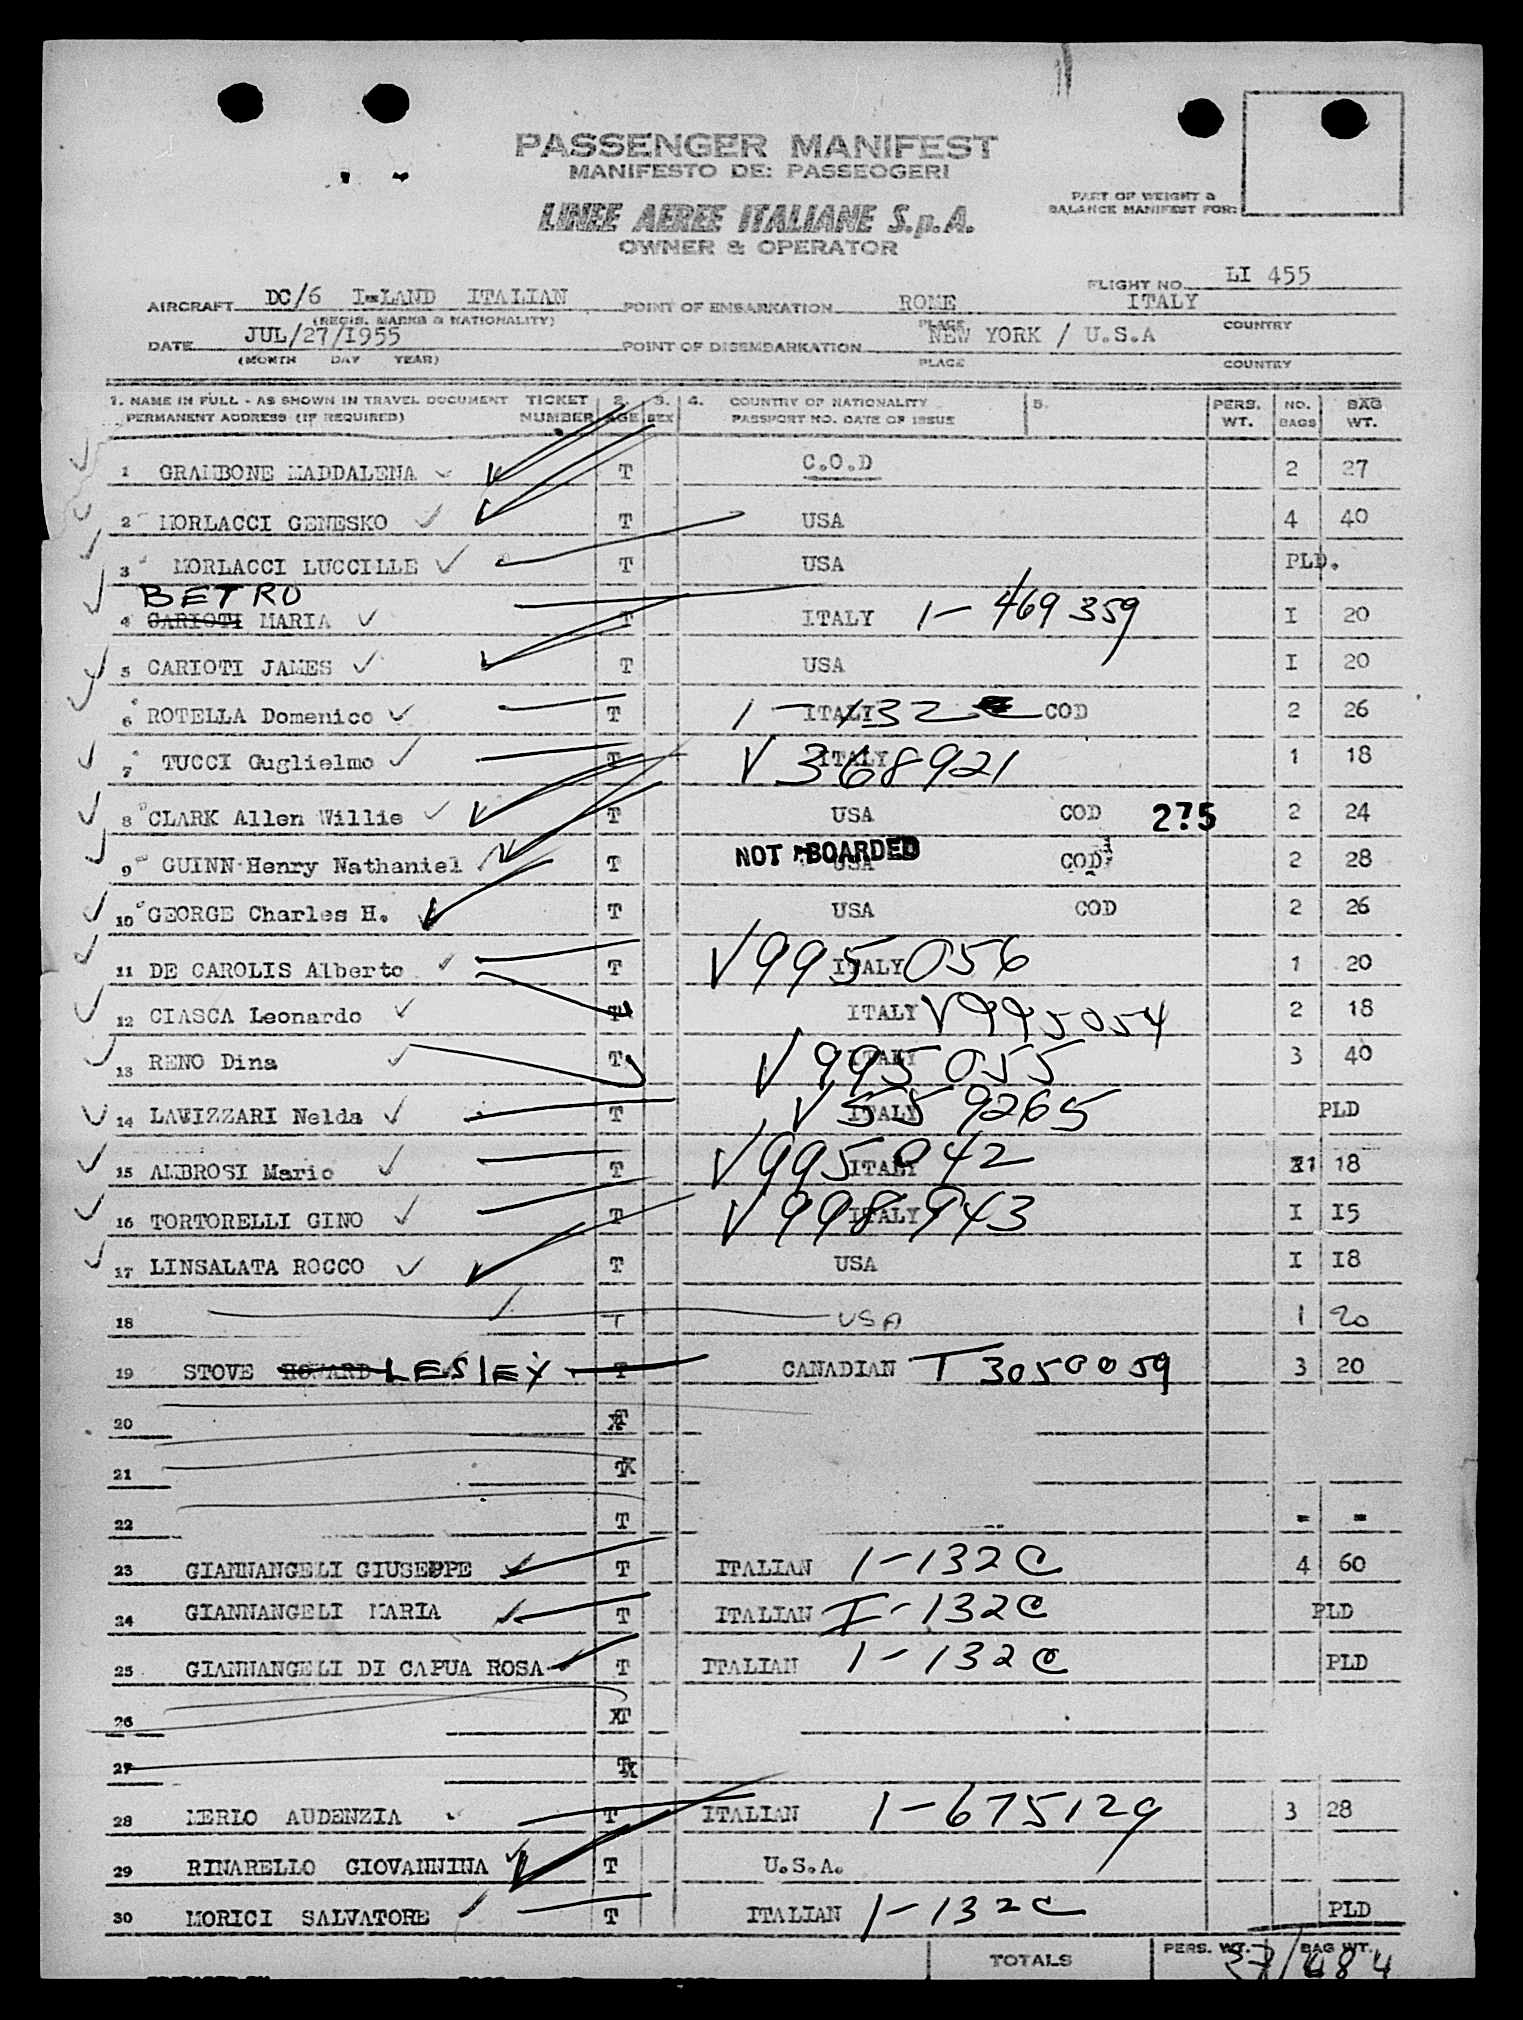 PASSENGER MANIFEST
MANIFESTO DE: PASSEOGERI
LINEE AEREE ITALIANE S.p.A.
OWNER & OPERATOR
PART OF WEIGHT &
BALANCE MANIFEST FOR:
AIRCRAFT DC/6 I-LAND ITALIAN
(REGIS. MARKS & NATIONALITY)
FLIGHT NO. LI 455
POINT OF EMBARKATION ROME ITALY
PLACE COUNTRY
DATE JUL/27/1955
(MONTH DAY YEAR)
POINT OF DISEMBARKATION NEW YORK / U.S.A
PLACE COUNTRY
1. NAME IN FULL - AS SHOWN IN TRAVEL DOCUMENT TICKET 2. 3. 4. COUNTRY OF NATIONALITY 5. PERS. NO. BAG
PERMANENT ADDRESS (IF REQUIRED) NUMBER AGE SEX PASSPORT NO. DATE OF ISSUE WT. BAGS WT.
1 GRAMBONE MADDALENA T C.O.D 2 27
2 MORLACCI GENESKO T USA 4 40
3 MORLACCI LUCCILLE T USA PLD.
BETRO
4 CARIOTI MARIA T ITALY 1-469359 I 20
5 CARIOTI JAMES T USA I 20
6 ROTELLA Domenico T ITALY 1-132 C COD 2 26
7 TUCCI Guglielmo T ITALY V368921 1 18
8 CLARK Allen Willie T USA COD 275 2 24
9 GUINN Henry Nathaniel T NOT BOARDED USA COD 2 28
10 GEORGE Charles H. T USA COD 2 26
11 DE CAROLIS Alberto T ITALY V995056 1 20
12 CIASCA Leonardo T ITALY V995054 2 18
13 RENO Dina T ITALY V995055 3 40
14 LAVIZZARI Nelda T ITALY V559265 PLD
15 AMBROSI Mario T ITALY V995042 1 18
16 TORTORELLI GINO T ITALY V998943 I I5
17 LINSALATA ROCCO T USA I I8
18 T USA 1 20
19 STOVE HOWARD LESLEY T CANADIAN T3050059 3 20
20 XT
21 TX
22 T - -
23 GIANNANGELI GIUSEPPE T ITALIAN 1-132C 4 60
24 GIANNANGELI MARIA T ITALIAN I-132C PLD
25 GIANNANGELI DI CAPUA ROSA T ITALIAN 1-132C PLD
26 XT
27 TX
28 MERLO AUDENZIA T ITALIAN 1-675129 3 28
29 RINARELLO GIOVANNINA T U.S.A.
30 MORICI SALVATORE T ITALIAN 1-132C PLD
TOTALS PERS. WT. BAG WT.